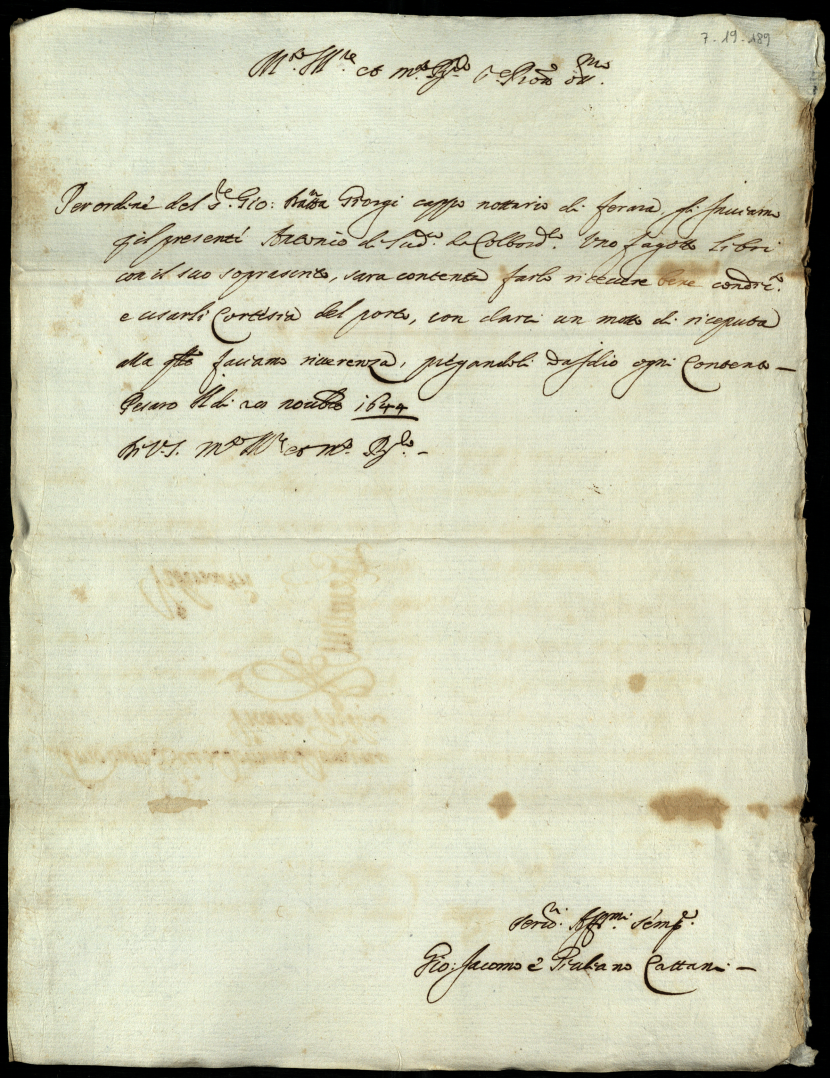 7-19-189
M.to Ill.re et m.to R.do S.re P.ron oss.mo
Per ordine del S.re Gio: Batta Giorgi cappo nottario di ferara, gli Inviamo
p il presente Antonio di Lud.o da Colbord.o Uno fagotto Libri
con il suo soprascrito, sara contenta farlo ricevere bene condit.o
e usarli Cortesia del porto, con darci un motto di riceputa
alla q̃le faciamo riverenza, pregandoli da Idio ogni Contento —
Pesaro li di 20 novẽbr 1644
Di V.S. m.to Ill.re et m.to R.do —
Serv.ri Aff.mi semp.e
Gio: Jacomo e Giuliano Cattani —